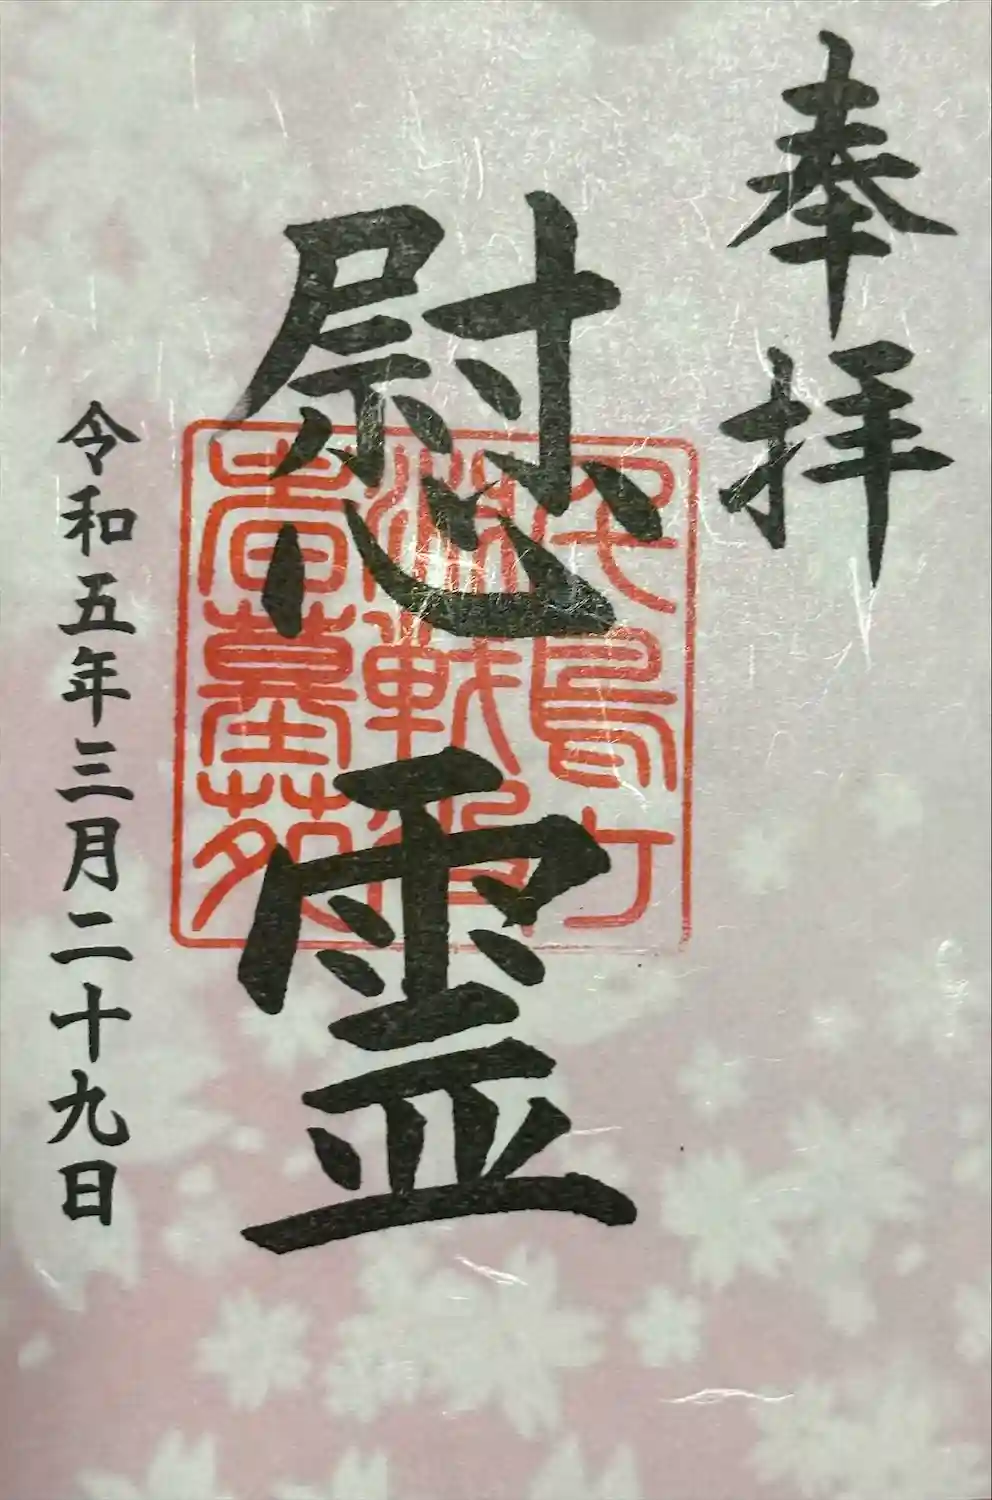 奉拝
慰霊
千鳥ヶ
淵戦没
者墓苑
令和五年三月二十九日